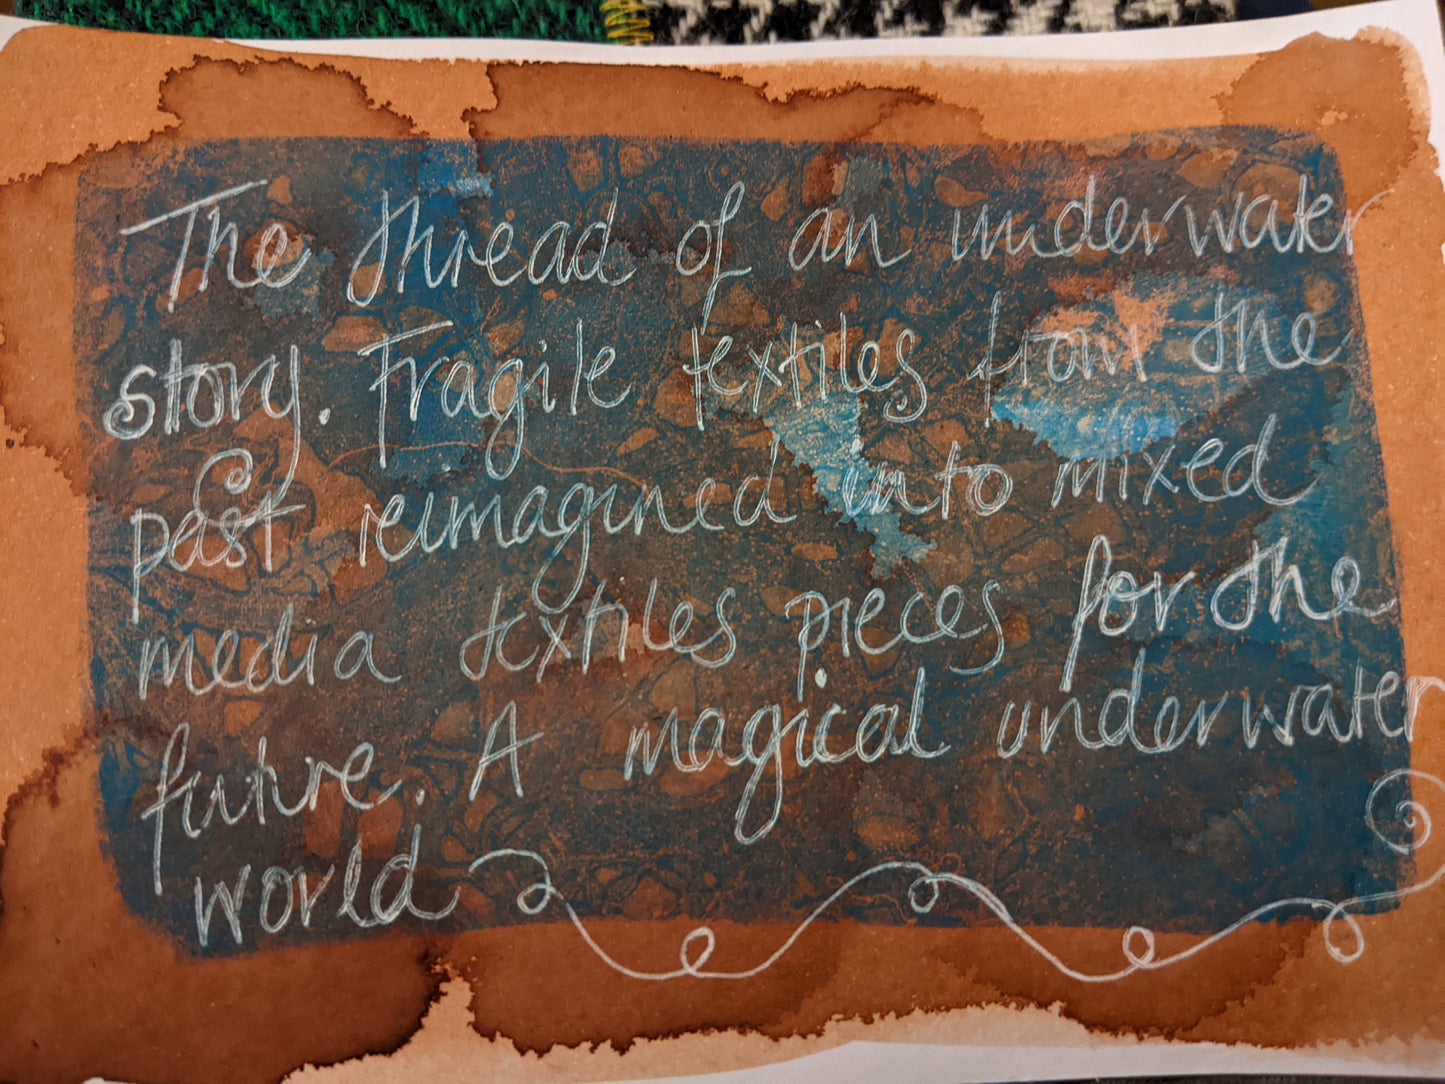 The thread of an underwater
story. Fragile textiles from the
past reimagined into mixed
media textiles pieces for the
future. A magical underwater
world